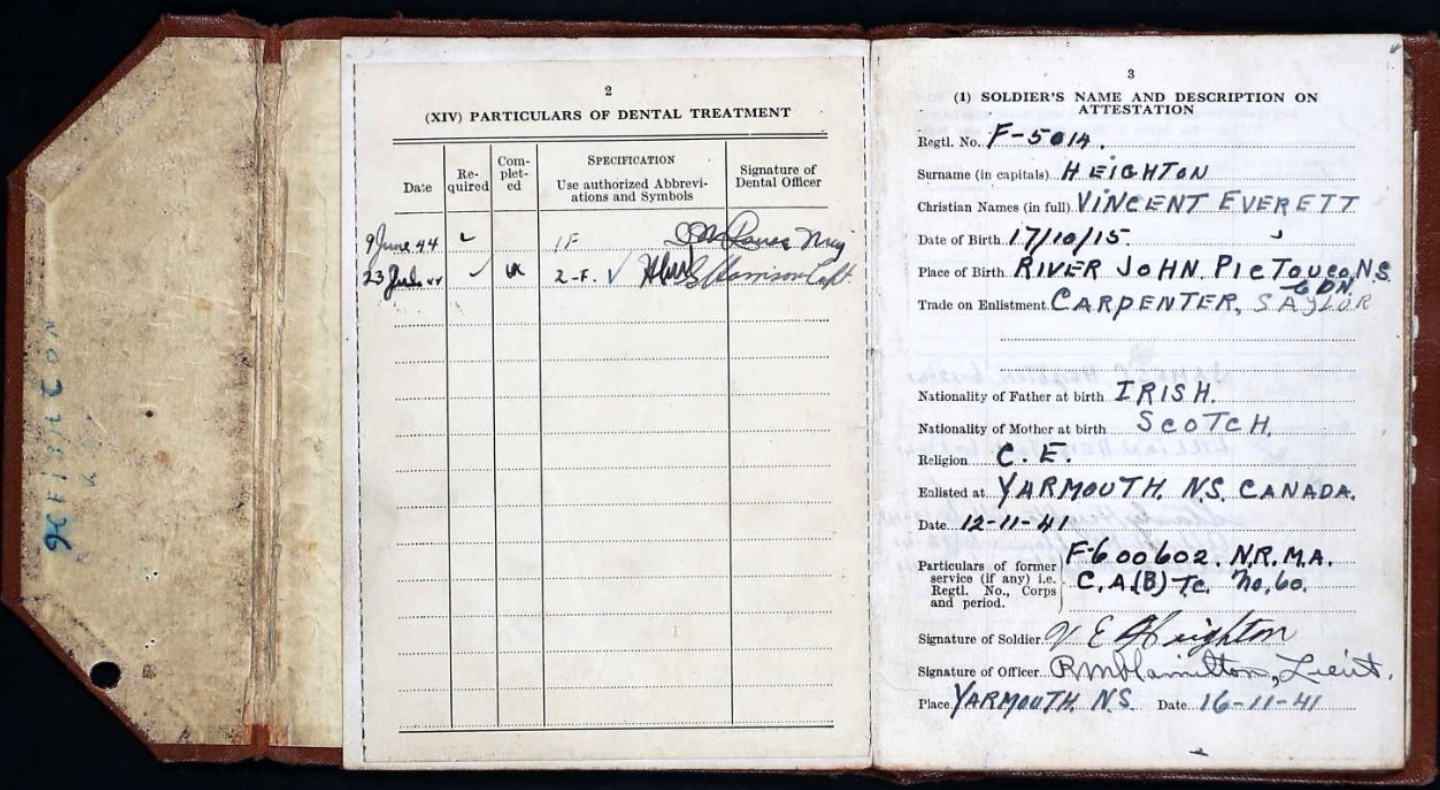 HEIGHTON
2
(XIV) PARTICULARS OF DENTAL TREATMENT
Date
Re-
quired
Com-
plet-
ed
SPECIFICATION
Use authorized Abbrevi-
ations and Symbols
Signature of
Dental Officer
9 June 44 1 F
23 2-F. Harrison Capt
3
(1) SOLDIER'S NAME AND DESCRIPTION ON
ATTESTATION
Regtl. No. F-5014.
Surname (in capitals) HEIGHTON
Christian Names (in full) VINCENT EVERETT
Date of Birth 17/10/15.
Place of Birth RIVER JOHN. PICTOU CO, N.S.
CDN.
Trade on Enlistment CARPENTER, SAYLOR
Nationality of Father at birth IRISH.
Nationality of Mother at birth SCOTCH.
Religion C. E.
Enlisted at YARMOUTH. N.S. CANADA.
Date 12-11-41
Particulars of former
service (if any) i.e.
Regtl. No., Corps
and period.
F-600602. N.R.M.A.
C.A.(B) T.C. No. 60.
Signature of Soldier V E Heighton
Signature of Officer R M Hamilton, Lieut.
Place YARMOUTH. N.S. Date 16-11-41